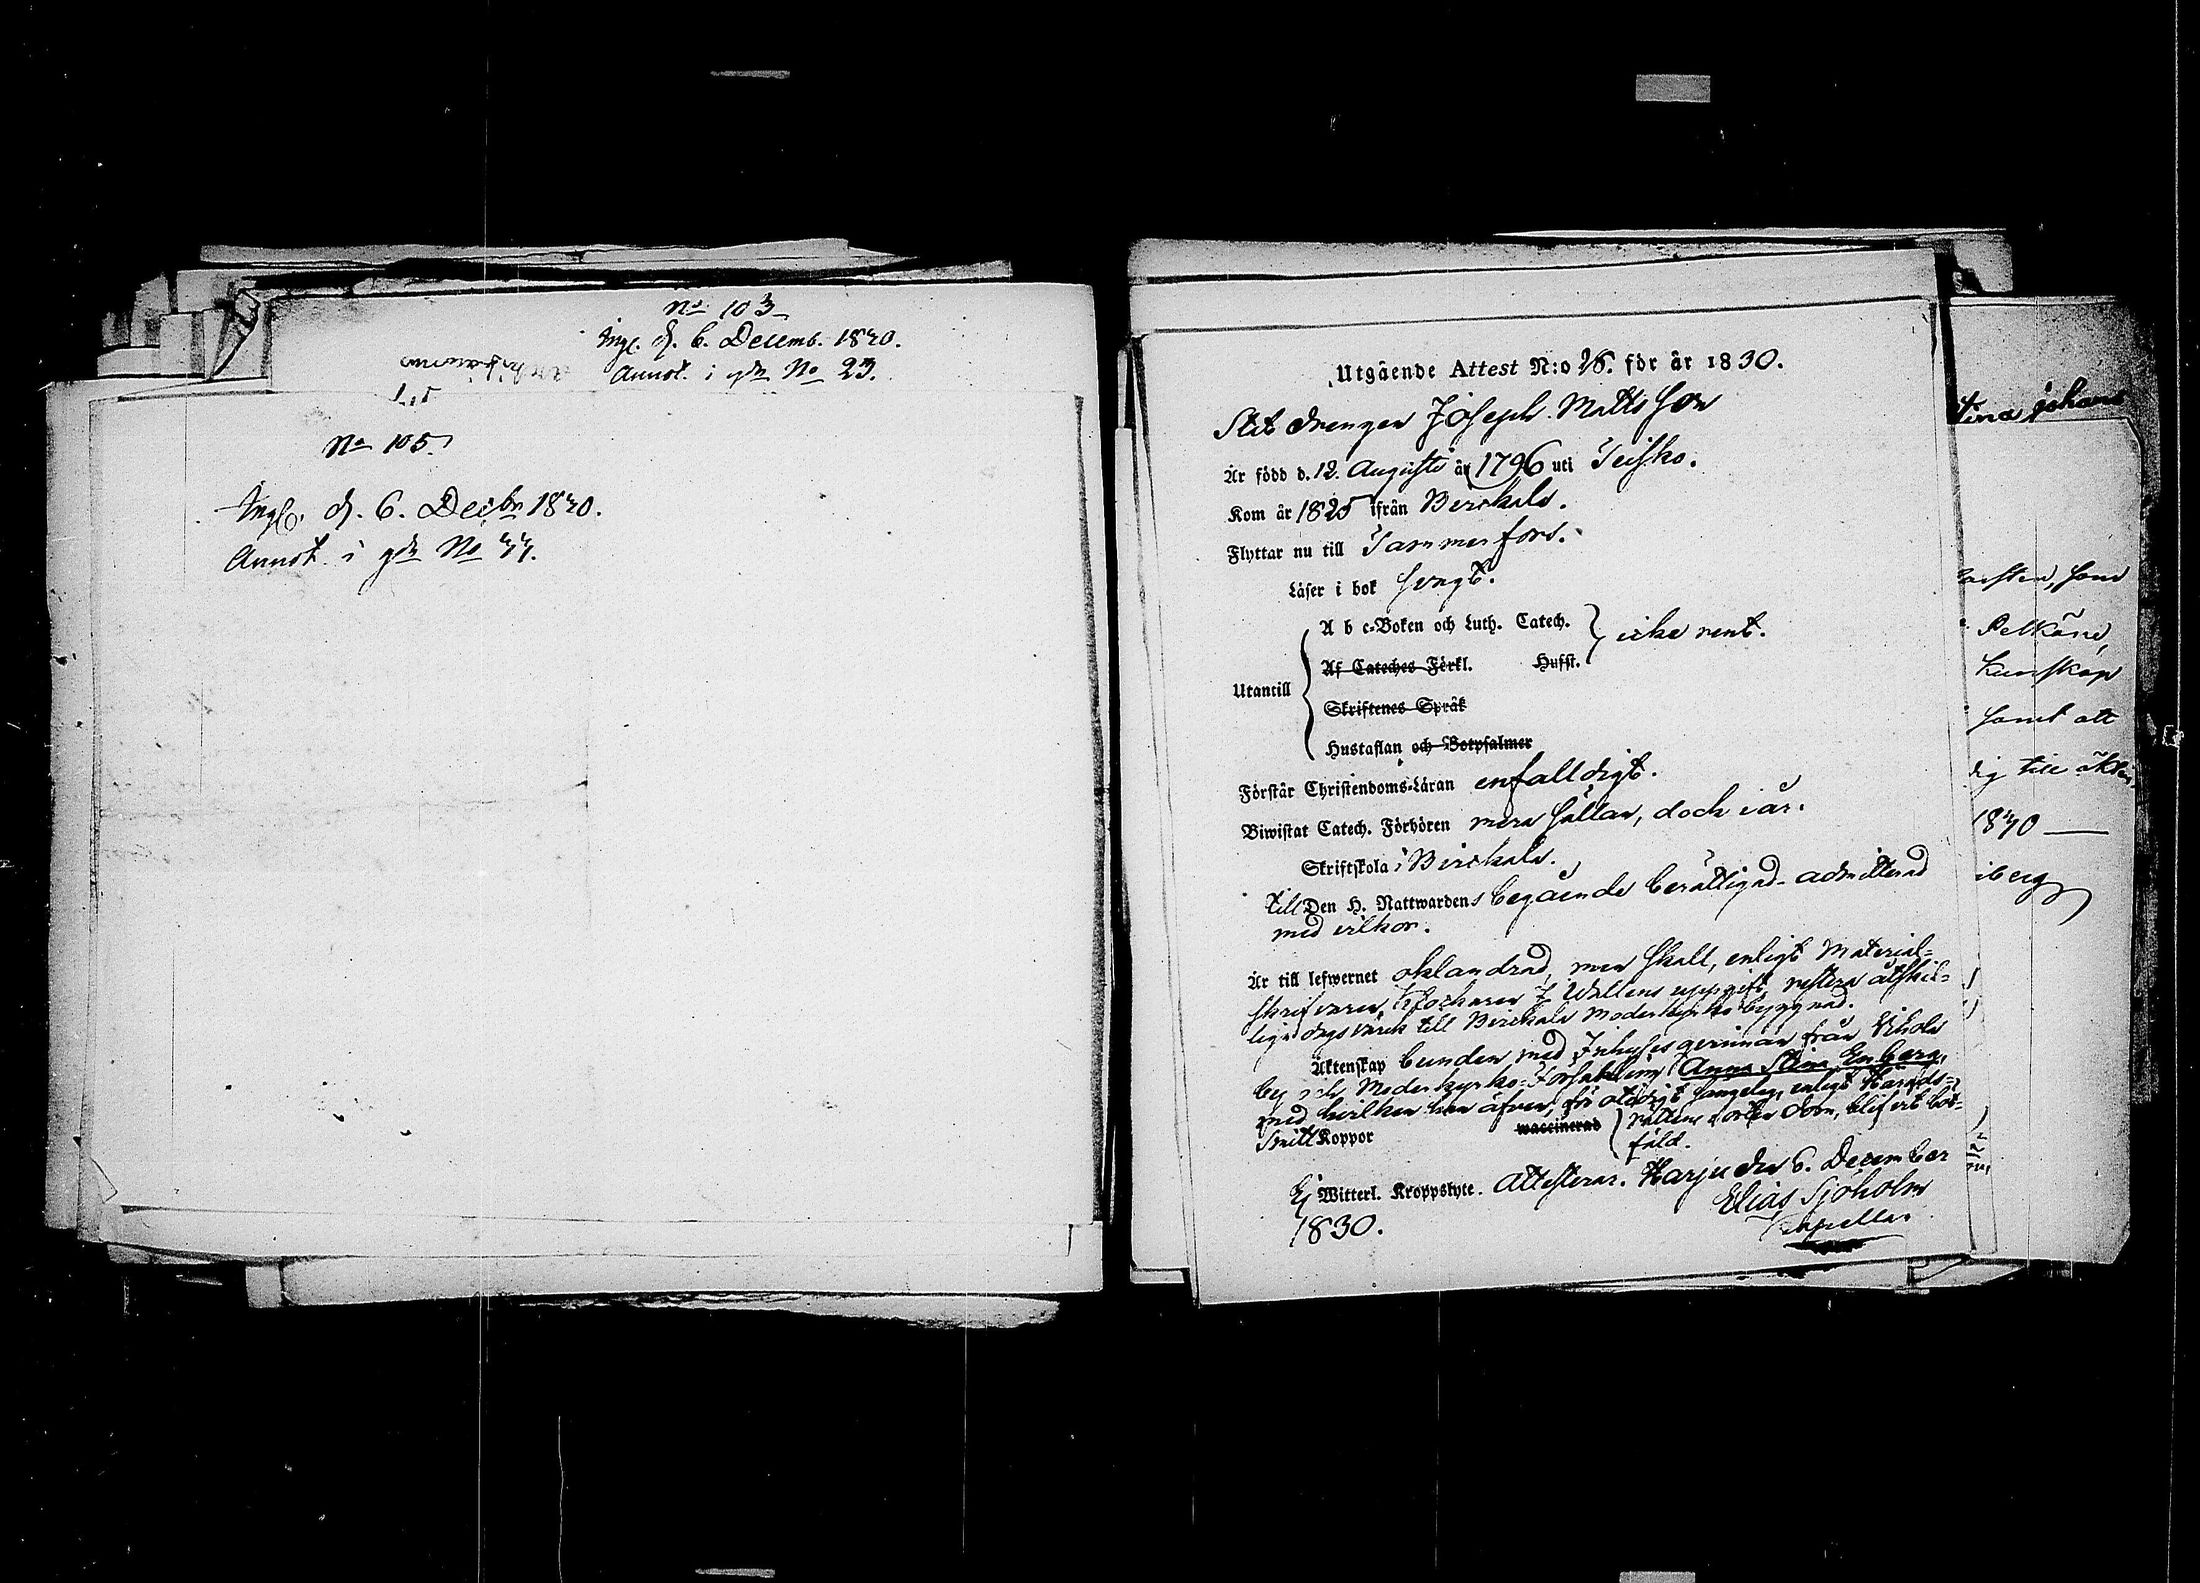 No 103
Ingl. d. 6. Decemb. 1840.
Annot. i gdn No 23.
No 105.
Ingl. d. 6. Decbr 1840.
Annot. i gdn No 44.
Utgående Attest N:o 28. för år 1830.
Stat drengen Joseph Matts Son
Är född d. 12. Augusti år 1796 uti Teisko.
Kom år 1825 ifrån Birckala.
Flyttar nu till Tammerfors.
Läser i bok svagt.
Utantill
A b c-Boken och Luth. Catech.
icke rent.
Af Cateches Förkl. Hufst.
Skriftenes Språk
Hustaflan och Botpsalmer
Förstår Christendoms-Läran enfalldigt.
Biwistat Catech. Förhören mera sällan, dock i år.
Skriftskola i Birckala.
till Den H. Nattwardens begående berättigad-admitterad
med vilkor.
Är till lefwernet oklandrad, men skall, enligt Material-
skrifvaren, Klockaren J. Walléns uppgift, restera åtskil-
liga dagsverk till Birckala Moderkyrko byggnad.
Äktenskap bunden med Inhyses qvinnan från
by och Moderkyrko-Församling Anna Stina Enberg,
med hvilken han äfven, för otidigt sängelag, enligt Härads-
Rättens dom, blifvit bot-
fäld.
haft Koppor waccinerad
Ej Witterl. Kroppslyte. Attesterar. Harju den 6. December
1830.
Elias Sjöholm
Capellan.
Stina Johans
Pelkäne
Kunskap
samt att
dig till äkten
1840
iberg